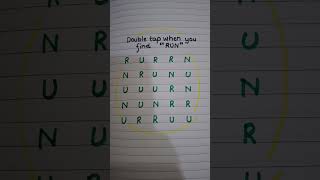 Double tap when you
find "RUN"
R U R R N
N R U N U
U U U R N
N U N R R
U R R U U